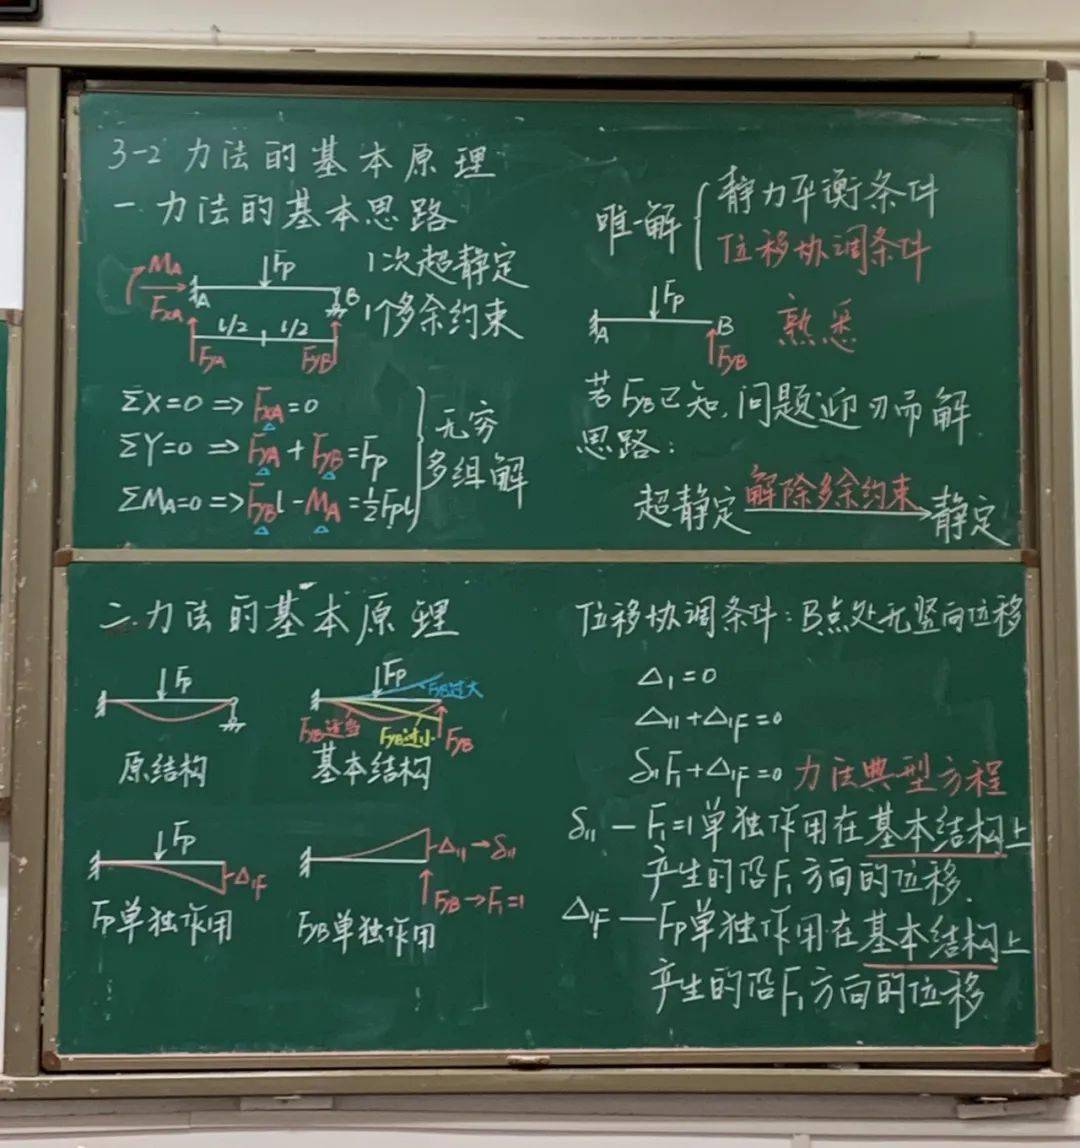 3-2 力法的基本原理
一.力法的基本思路
MA
FxA
A
FP
B
1次超静定
1个多余约束
l/2
l/2
FyA
FyB
ΣX=0 => FxA=0
ΣY=0 => FyA+FyB=FP
ΣMA=0 => FyBl-MA=½FPl
无穷
多组解
唯一解
静力平衡条件
位移协调条件
FP
A
B
FyB
熟悉
若FyB已知,问题迎刃而解
思路:
超静定 解除多余约束 静定
二.力法的基本原理
FP
原结构
FP
FyB过大
FyB适当
FyB过小
FyB
基本结构
FP
Δ1F
FP单独作用
Δ11→δ11
FyB→F1=1
FyB单独作用
位移协调条件:B点处无竖向位移
Δ1=0
Δ11+Δ1F=0
δ11F1+Δ1F=0 力法典型方程
δ11—F1=1单独作用在基本结构上
产生的沿F1方向的位移.
Δ1F—FP单独作用在基本结构上
产生的沿F1方向的位移